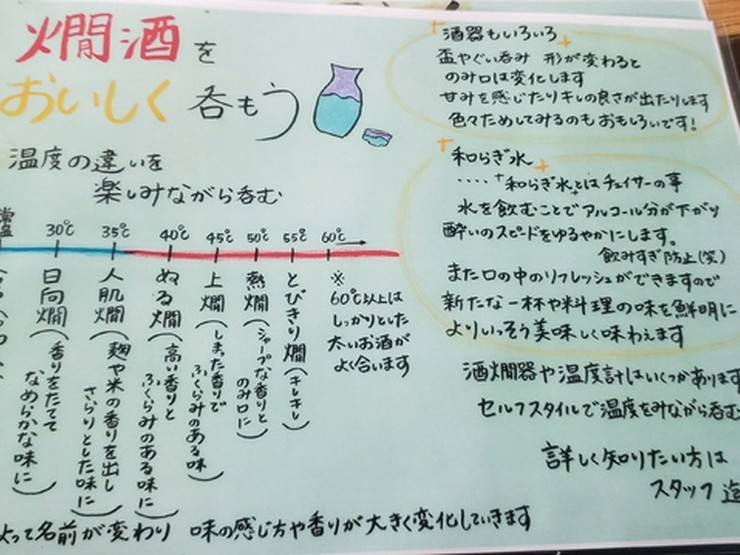 燗酒を
おいしく呑もう
温度の違いを
楽しみながら呑む
常温 30℃ 35℃ 40℃ 45℃ 50℃ 55℃ 60℃
日向燗(香りをたてて
なめらかな味に)
人肌燗(麹や米の香りを出し
さらりとした味に)
ぬる燗(高い香りと
ふくらみのある味に)
上燗(しまった香りで
ふくらみのある味)
熱燗(シャープな香りと
のみ口に)
とびきり燗(キレキレ)
※
60℃以上は
しっかりとした
太いお酒が
よく合います
よって名前が変わり 味の感じ方や香りが大きく変化していきます
酒器もいろいろ
盃やぐい呑み 形が変わると
のみ口は変化します
甘みを感じたりキレの良さが出たりします
色々ためしてみるのもおもしろいです!
和らぎ水
・・・・和らぎ水とはチェイサーの事
水を飲むことでアルコール分が下がり
酔いのスピードをゆるやかにします。
飲みすぎ防止(笑)
また口の中のリフレッシュができますので
新たな一杯や料理の味を鮮明に
よりいっそう美味しく味わえます
酒燗器や温度計はいくつかあります
セルフスタイルで温度をみながら呑む
詳しく知りたい方は
スタッフ迄